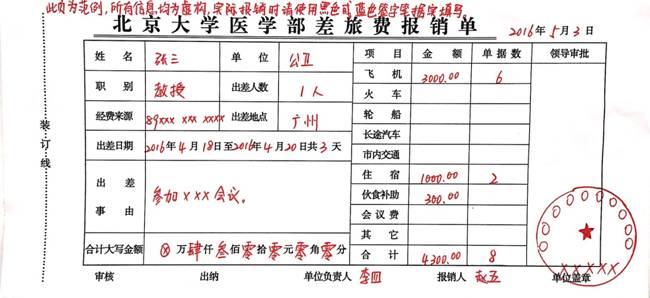 此页为范例,所有信息均为虚构,实际报销时请使用黑色或蓝色签字笔据实填写。
北京大学医学部差旅费报销单
2016年5月3日
姓名 张三 单位 公卫 项目 金额 单据数 领导审批
职别 教授 出差人数 1人 飞机 3000.00 6
火车
经费来源 89xxx xxx xxxx 出差地点 广州 轮船
长途汽车
出差日期 2016年4月18日至2016年4月20日共3天 市内交通
出差事由 参加xxx会议。 住宿 1000.00 2
伙食补助 300.00
会议费
其它
合计大写金额 ⊗万肆仟叁佰零拾零元零角零分 合计 4300.00 8
审核 出纳 单位负责人 李四 报销人 赵五 单位盖章
装订线
XXXXX